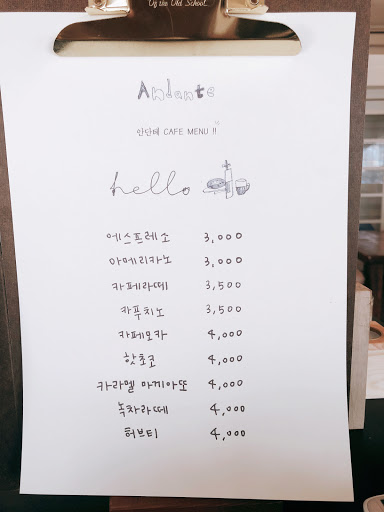 Of the Old School.
Andante
안단테 CAFE MENU !!
hello
에스프레소 3,000
아메리카노 3,000
카페라떼 3,500
카푸치노 3,500
카페모카 4,000
핫초코 4,000
카라멜 마끼아또 4,000
녹차라떼 4,000
허브티 4,000